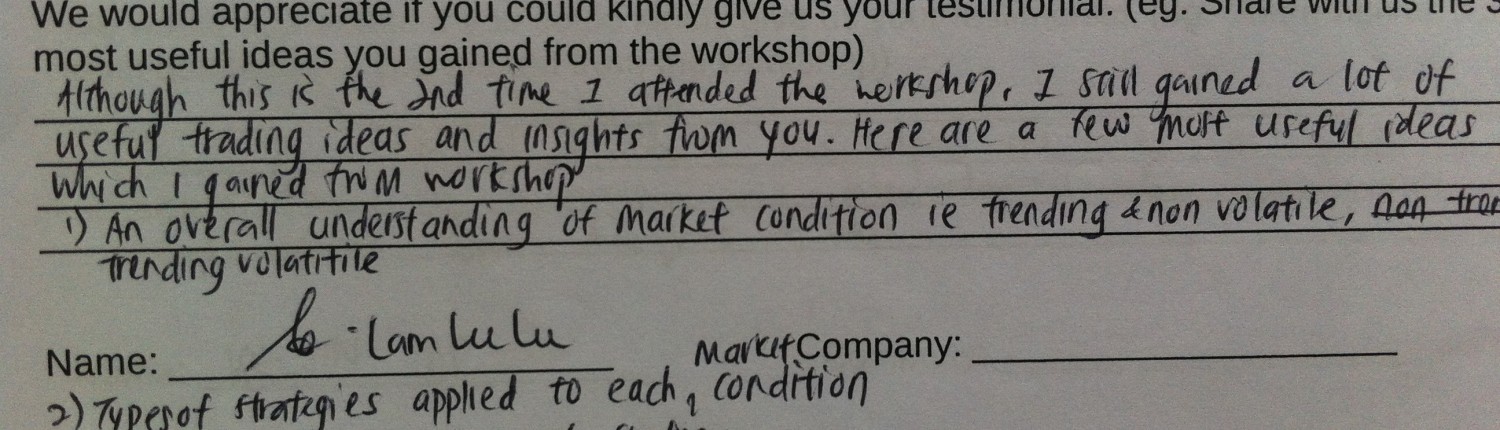 We would appreciate if you could kindly give us your testimonial. (eg. Share with us the
most useful ideas you gained from the workshop)
Although this is the 2nd time I attended the workshop, I still gained a lot of
useful trading ideas and insights from you. Here are a few most useful ideas
which I gained from workshop
1) An overall understanding of market condition ie trending & non volatile, non
trending volatitile
Lam Lu Lu
Name:
Market Company:
2) Types of strategies applied to each, condition